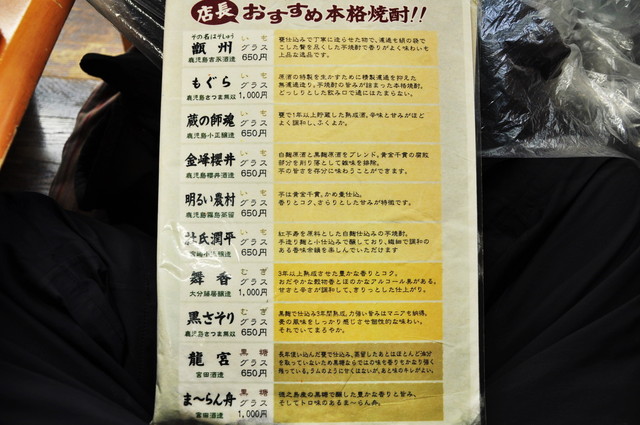 店長 おすすめ本格焼酎!!
その名はぞしゅう いも
甑州 グラス
鹿児島吉永酒造 650円
甕仕込みで丁寧に造らせた物で、濾過も絹の袋で
こした贅を尽くした芋焼酎で香りがよく味わいも
上品な逸品です。
いも
もぐら グラス
鹿児島さつま無双 1,000円
原酒の特製を生かすために精製濾過を抑えた
無濾過造り。芋焼酎の甘みが詰まった本格焼酎。
どっしりとした飲み口で通にはたまらない。
いも
蔵の師魂 グラス
鹿児島小正醸造 650円
甕で1年以上貯蔵した熟成酒。辛味と甘みがほど
よく調和し、ふくよか。
いも
金峰櫻井 グラス
鹿児島櫻井酒造 650円
白麹原酒と黒麹原酒をブレンド。黄金千貫の腐敗
部分を削り落として雑味を排除。
芋の甘さを存分に味わうことができます。
いも
明るい農村 グラス
鹿児島霧島茶留 650円
芋は黄金千貫、かめ壷仕込。
香りとコク、さらりとした甘みが特徴です。
いも
杜氏潤平 グラス
宮崎小玉醸造 650円
紅芋寿を原料とした白麹仕込みの芋焼酎。
手造り麹と小仕込みで醸しており、繊細で調和の
ある香味余韻を楽しんでいただけます
むぎ
舞香 グラス
大分藤居醸造 1,000円
3年以上熟成させた豊かな香りとコク。
おだやかな穀物香とほのかなアルコール臭がある。
甘さと辛さが調和して、きりっとした仕上がり。
むぎ
黒さそり グラス
鹿児島さつま無双 650円
黒麹で仕込み3年間熟成。力強い旨みはマニアも納得。
麦の風味をしっかり感じさせ個性的な味わい。
それでいてまろやか。
黒糖
龍宮 グラス
富田酒造 650円
長年使い込んだ甕で仕込み、蒸留したあとはほとんど油分
を取っていないため黒糖ならではの味も香りをかなり強く
残っている。ラムのように甘くはないが、あと味のキレがよい。
黒糖
ま〜らん舟 グラス
富田酒造 1,000円
徳之島産の黒糖で醸した豊かな香りと旨み、
そしてトロ味のあるま〜らん舟。